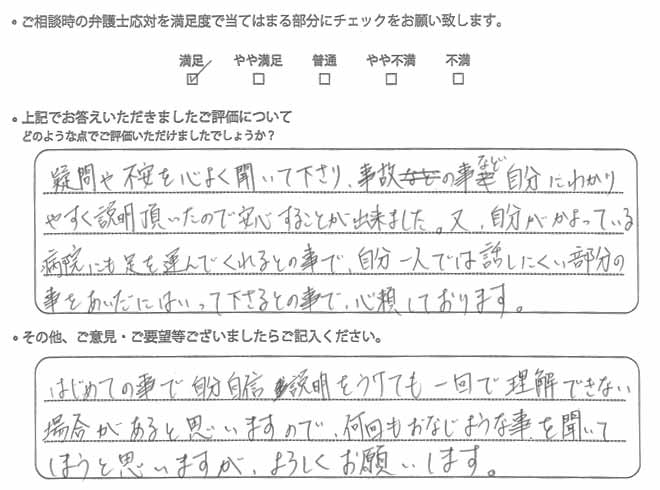 • ご相談時の弁護士応対を満足度で当てはまる部分にチェックをお願い致します。
満足 やや満足 普通 やや不満 不満
☑ □ □ □ □
• 上記でお答えいただきましたご評価について
どのような点でご評価いただけましたでしょうか?
疑問や不安を心よく聞いて下さり、事故の事など自分にわかり
やすく説明頂いたので安心することが出来ました。又、自分がかよっている
病院にも足を運んでくれるとの事で、自分一人では話しにくい部分の
事をあいだにはいって下さるとの事で、心頼しております。
• その他、ご意見・ご要望等ございましたらご記入ください。
はじめての事で自分自信説明をうけても一回で理解できない
場合があると思いますので、何回もおなじような事を聞いて
しまうと思いますが、よろしくお願いします。